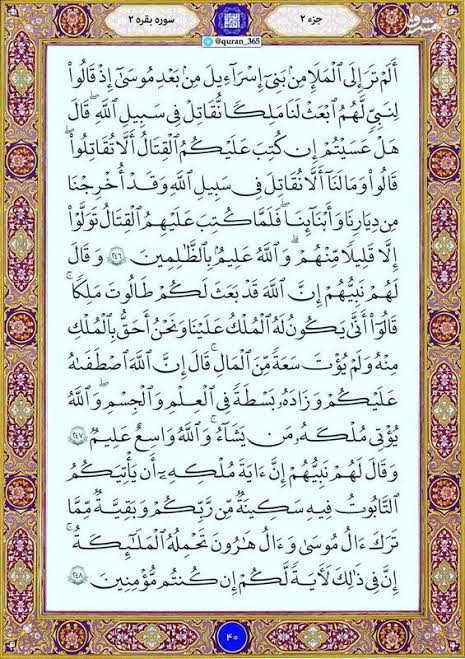 جزء ۲
سوره بقره ۲
@quran_365
أَلَمْ تَرَ إِلَى ٱلْمَلَإِ مِنۢ بَنِىٓ إِسْرَآءِيلَ مِنۢ بَعْدِ مُوسَىٰٓ إِذْ قَالُوا۟
لِنَبِىٍّ لَّهُمُ ٱبْعَثْ لَنَا مَلِكًا نُّقَاتِلْ فِى سَبِيلِ ٱللَّهِ ۖ قَالَ
هَلْ عَسَيْتُمْ إِن كُتِبَ عَلَيْكُمُ ٱلْقِتَالُ أَلَّا تُقَاتِلُوا۟ ۖ
قَالُوا۟ وَمَا لَنَآ أَلَّا نُقَاتِلَ فِى سَبِيلِ ٱللَّهِ وَقَدْ أُخْرِجْنَا
مِن دِيَارِنَا وَأَبْنَآئِنَا ۖ فَلَمَّا كُتِبَ عَلَيْهِمُ ٱلْقِتَالُ تَوَلَّوْا۟
إِلَّا قَلِيلًا مِّنْهُمْ ۗ وَٱللَّهُ عَلِيمٌۢ بِٱلظَّـٰلِمِينَ ۝٢٤٦ وَقَالَ
لَهُمْ نَبِيُّهُمْ إِنَّ ٱللَّهَ قَدْ بَعَثَ لَكُمْ طَالُوتَ مَلِكًا ۚ
قَالُوٓا۟ أَنَّىٰ يَكُونُ لَهُ ٱلْمُلْكُ عَلَيْنَا وَنَحْنُ أَحَقُّ بِٱلْمُلْكِ
مِنْهُ وَلَمْ يُؤْتَ سَعَةً مِّنَ ٱلْمَالِ ۚ قَالَ إِنَّ ٱللَّهَ ٱصْطَفَىٰهُ
عَلَيْكُمْ وَزَادَهُۥ بَسْطَةً فِى ٱلْعِلْمِ وَٱلْجِسْمِ ۖ وَٱللَّهُ
يُؤْتِى مُلْكَهُۥ مَن يَشَآءُ ۚ وَٱللَّهُ وَٰسِعٌ عَلِيمٌ ۝٢٤٧
وَقَالَ لَهُمْ نَبِيُّهُمْ إِنَّ ءَايَةَ مُلْكِهِۦٓ أَن يَأْتِيَكُمُ
ٱلتَّابُوتُ فِيهِ سَكِينَةٌ مِّن رَّبِّكُمْ وَبَقِيَّةٌ مِّمَّا
تَرَكَ ءَالُ مُوسَىٰ وَءَالُ هَـٰرُونَ تَحْمِلُهُ ٱلْمَلَـٰٓئِكَةُ ۚ
إِنَّ فِى ذَٰلِكَ لَـَٔايَةً لَّكُمْ إِن كُنتُم مُّؤْمِنِينَ ۝٢٤٨
۴۰